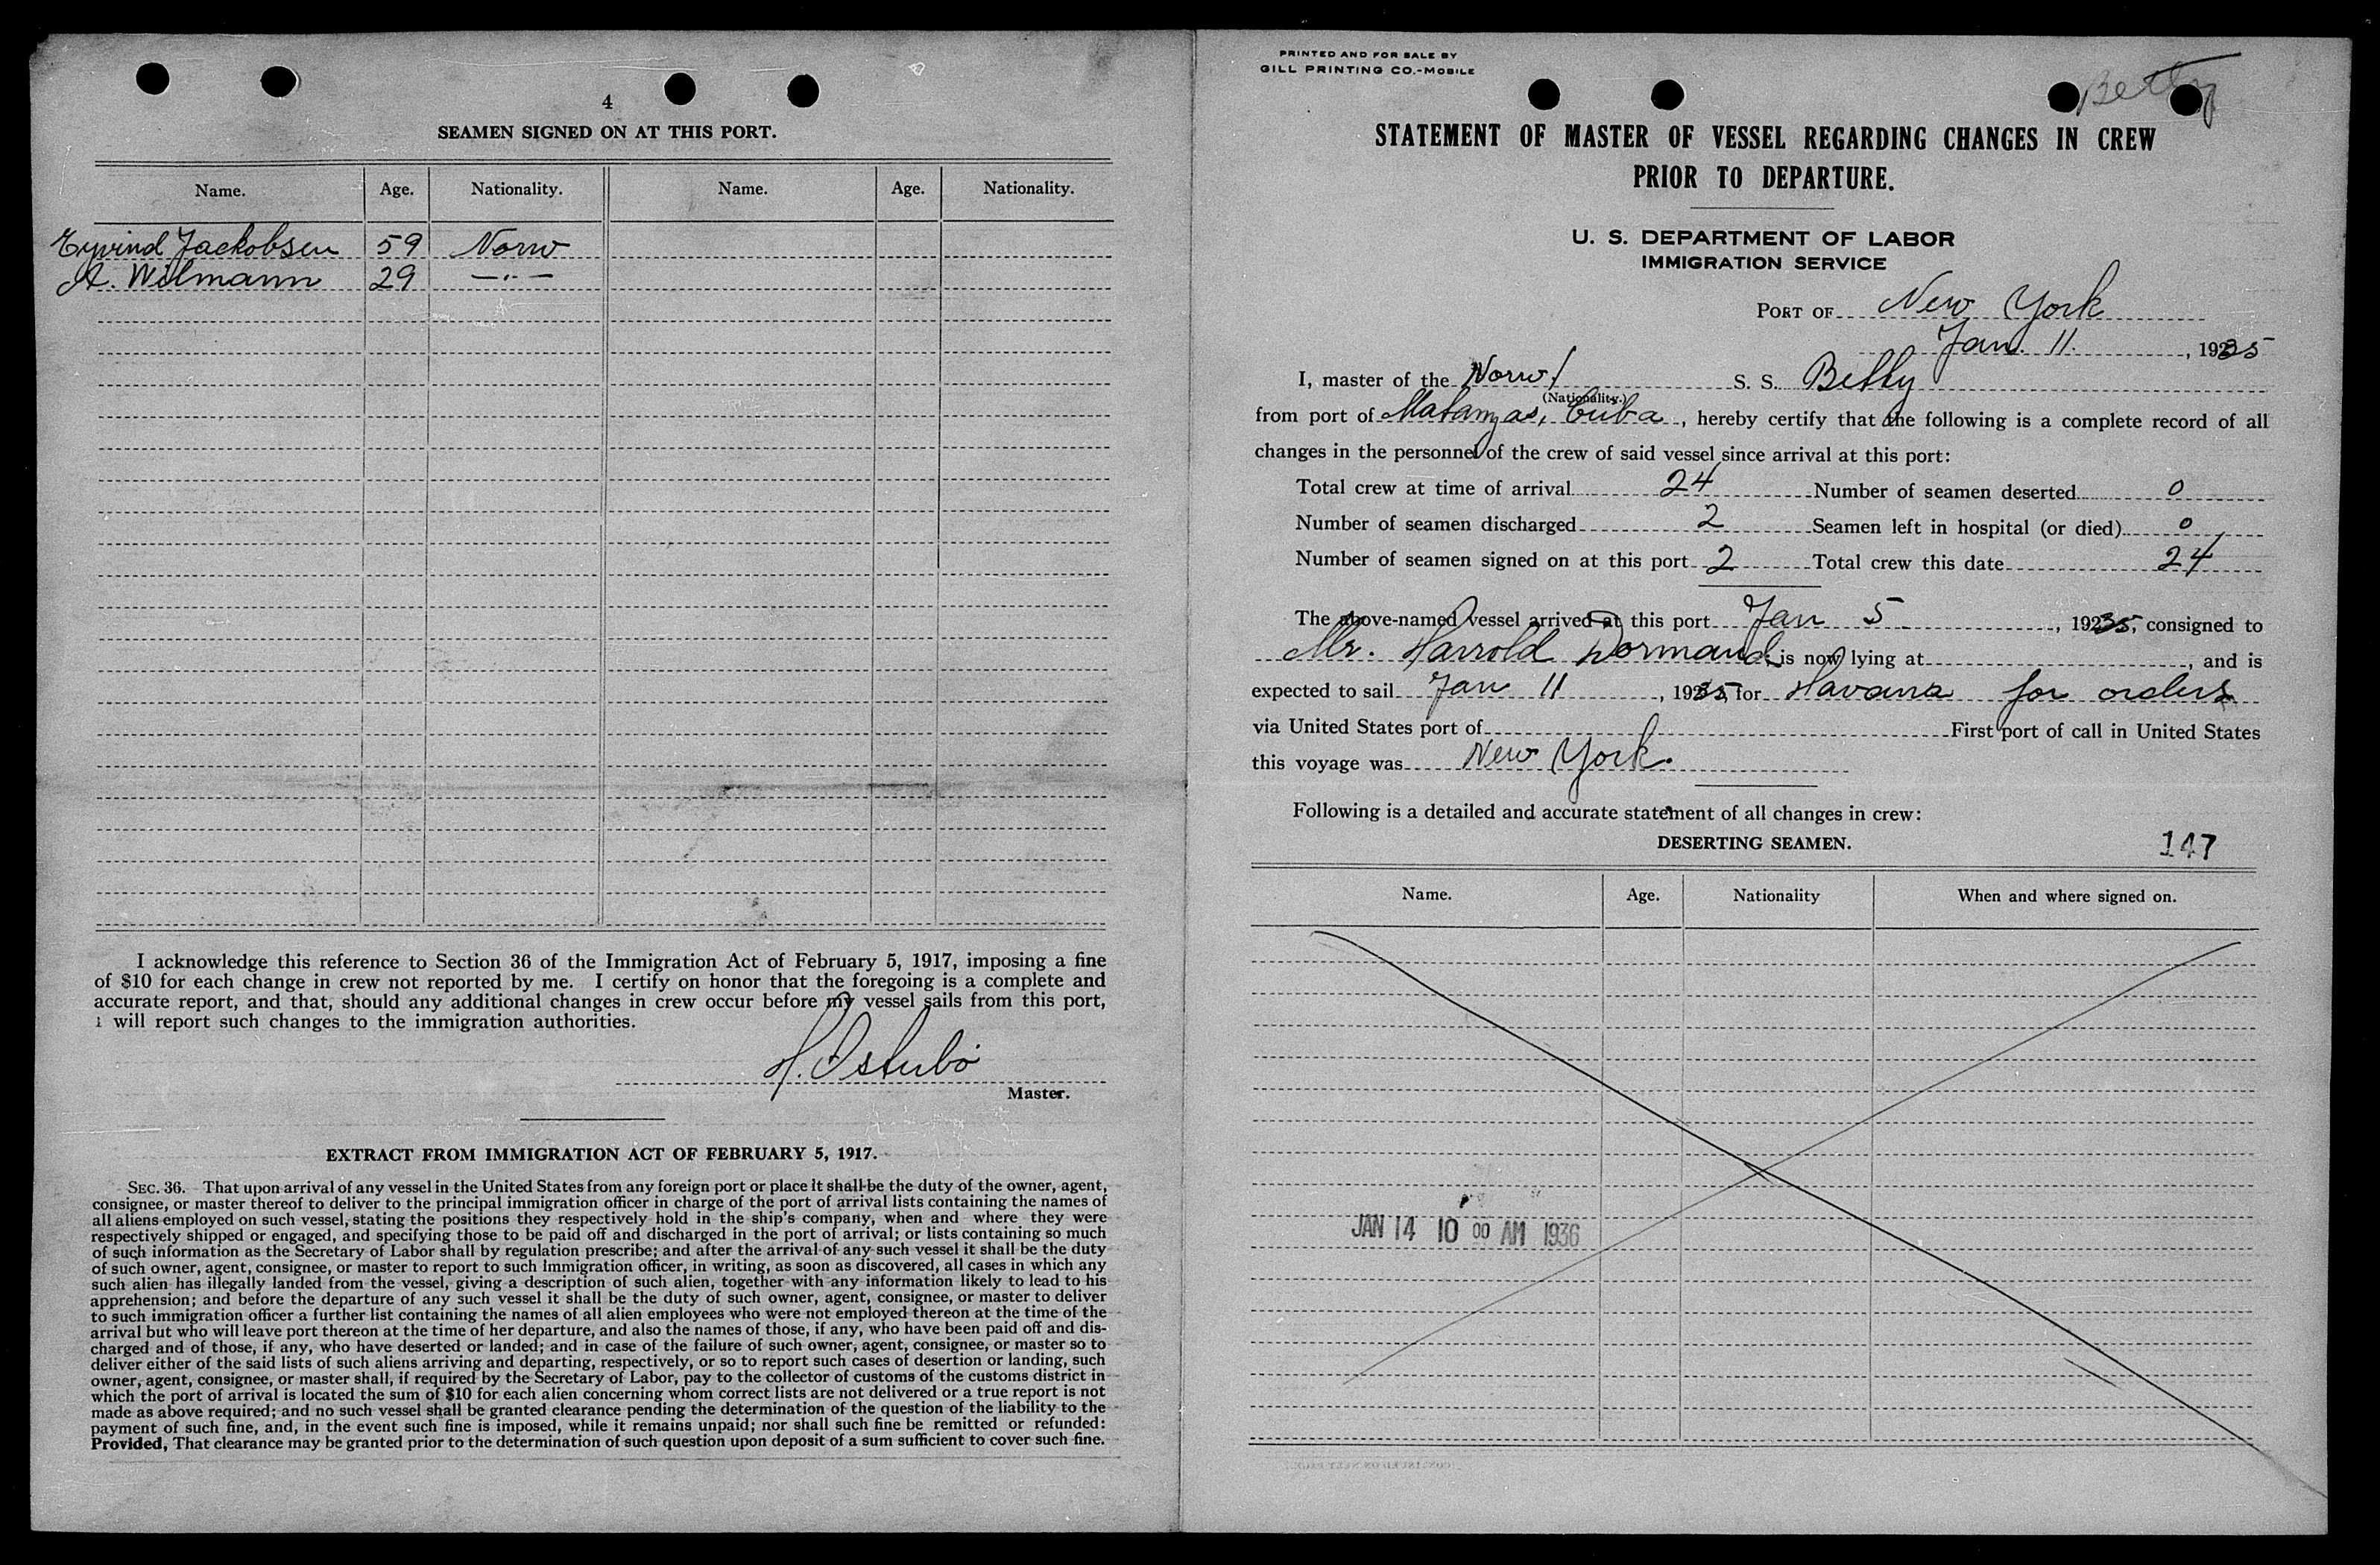 4
SEAMEN SIGNED ON AT THIS PORT.
Name. Age. Nationality. Name. Age. Nationality.
Eyvind Jackobsen 59 Norw
A. Wilmann 29 —"—
I acknowledge this reference to Section 36 of the Immigration Act of February 5, 1917, imposing a fine
of $10 for each change in crew not reported by me. I certify on honor that the foregoing is a complete and
accurate report, and that, should any additional changes in crew occur before my vessel sails from this port,
i will report such changes to the immigration authorities.
H. Østerbö
Master.
EXTRACT FROM IMMIGRATION ACT OF FEBRUARY 5, 1917.
SEC. 36. That upon arrival of any vessel in the United States from any foreign port or place it shall be the duty of the owner, agent,
consignee, or master thereof to deliver to the principal immigration officer in charge of the port of arrival lists containing the names of
all aliens employed on such vessel, stating the positions they respectively hold in the ship's company, when and where they were
respectively shipped or engaged, and specifying those to be paid off and discharged in the port of arrival; or lists containing so much
of such information as the Secretary of Labor shall by regulation prescribe; and after the arrival of any such vessel it shall be the duty
of such owner, agent, consignee, or master to report to such immigration officer, in writing, as soon as discovered, all cases in which any
such alien has illegally landed from the vessel, giving a description of such alien, together with any information likely to lead to his
apprehension; and before the departure of any such vessel it shall be the duty of such owner, agent, consignee, or master to deliver
to such immigration officer a further list containing the names of all alien employees who were not employed thereon at the time of the
arrival but who will leave port thereon at the time of her departure, and also the names of those, if any, who have been paid off and dis-
charged and of those, if any, who have deserted or landed; and in case of the failure of such owner, agent, consignee, or master so to
deliver either of the said lists of such aliens arriving and departing, respectively, or so to report such cases of desertion or landing, such
owner, agent, consignee, or master shall, if required by the Secretary of Labor, pay to the collector of customs of the customs district in
which the port of arrival is located the sum of $10 for each alien concerning whom correct lists are not delivered or a true report is not
made as above required; and no such vessel shall be granted clearance pending the determination of the question of the liability to the
payment of such fine, and, in the event such fine is imposed, while it remains unpaid; nor shall such fine be remitted or refunded:
Provided, That clearance may be granted prior to the determination of such question upon deposit of a sum sufficient to cover such fine.
PRINTED AND FOR SALE BY
GILL PRINTING CO.-MOBILE
Betty
STATEMENT OF MASTER OF VESSEL REGARDING CHANGES IN CREW
PRIOR TO DEPARTURE.
U. S. DEPARTMENT OF LABOR
IMMIGRATION SERVICE
PORT OF New York
Jan. 11. , 1935
I, master of the Norw/ S. S. Betty
(Nationality.)
from port of Matanzas, Cuba , hereby certify that the following is a complete record of all
changes in the personnel of the crew of said vessel since arrival at this port:
Total crew at time of arrival 24 Number of seamen deserted 0
Number of seamen discharged 2 Seamen left in hospital (or died) 0
Number of seamen signed on at this port 2 Total crew this date 24
The above-named vessel arrived at this port Jan 5 , 1935, consigned to
Mr. Harrold Dormand, is now lying at , and is
expected to sail Jan 11 , 1935, for Havana for orders
via United States port of First port of call in United States
this voyage was New York.
Following is a detailed and accurate statement of all changes in crew:
DESERTING SEAMEN. 147
Name. Age. Nationality When and where signed on.
JAN 14 10 00 AM 1936